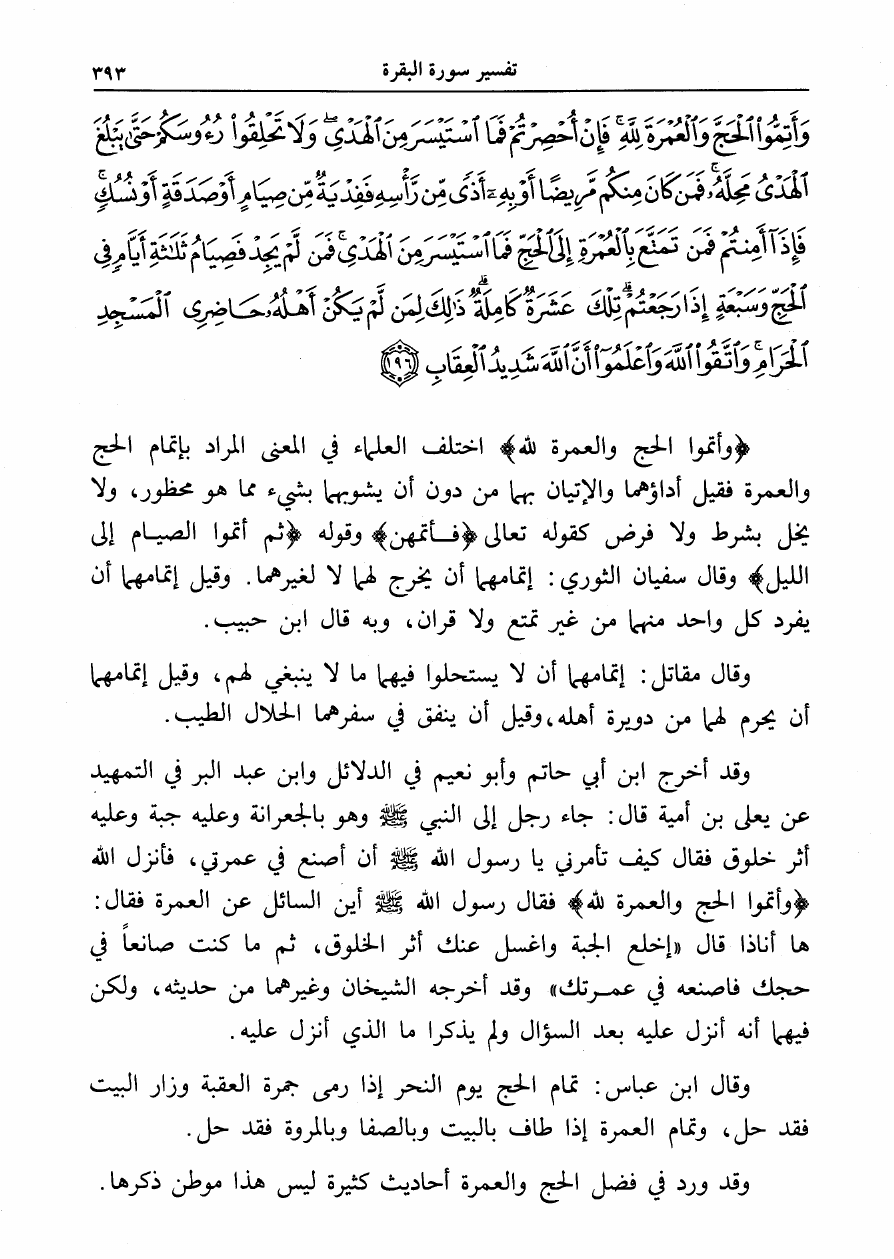 تفسير سورة البقرة ٣٩٣
وَأَتِمُّوا۟ ٱلْحَجَّ وَٱلْعُمْرَةَ لِلَّهِ ۚ فَإِنْ أُحْصِرْتُمْ فَمَا ٱسْتَيْسَرَ مِنَ ٱلْهَدْىِ ۖ وَلَا تَحْلِقُوا۟ رُءُوسَكُمْ حَتَّىٰ يَبْلُغَ
ٱلْهَدْىُ مَحِلَّهُۥ ۚ فَمَن كَانَ مِنكُم مَّرِيضًا أَوْ بِهِۦٓ أَذًى مِّن رَّأْسِهِۦ فَفِدْيَةٌ مِّن صِيَامٍ أَوْ صَدَقَةٍ أَوْ نُسُكٍ ۚ
فَإِذَآ أَمِنتُمْ فَمَن تَمَتَّعَ بِٱلْعُمْرَةِ إِلَى ٱلْحَجِّ فَمَا ٱسْتَيْسَرَ مِنَ ٱلْهَدْىِ ۚ فَمَن لَّمْ يَجِدْ فَصِيَامُ ثَلَٰثَةِ أَيَّامٍ فِى
ٱلْحَجِّ وَسَبْعَةٍ إِذَا رَجَعْتُمْ ۗ تِلْكَ عَشَرَةٌ كَامِلَةٌ ۗ ذَٰلِكَ لِمَن لَّمْ يَكُنْ أَهْلُهُۥ حَاضِرِى ٱلْمَسْجِدِ
ٱلْحَرَامِ ۚ وَٱتَّقُوا۟ ٱللَّهَ وَٱعْلَمُوٓا۟ أَنَّ ٱللَّهَ شَدِيدُ ٱلْعِقَابِ ١٩٦
﴿وأتموا الحج والعمرة لله﴾ اختلف العلماء في المعنى المراد بإتمام الحج
والعمرة فقيل أداؤهما والإتيان بهما من دون أن يشوبهما بشيء مما هو محظور، ولا
يخل بشرط ولا فرض كقوله تعالى ﴿فأتمهن﴾ وقوله ﴿ثم أتموا الصيام إلى
الليل﴾ وقال سفيان الثوري: إتمامهما أن يخرج لهما لا لغيرهما. وقيل إتمامهما أن
يفرد كل واحد منهما من غير تمتع ولا قران، وبه قال ابن حبيب.
وقال مقاتل: إتمامهما أن لا يستحلوا فيهما ما لا ينبغي لهم، وقيل إتمامهما
أن يحرم لهما من دويرة أهله، وقيل أن ينفق في سفرهما الحلال الطيب.
وقد أخرج ابن أبي حاتم وأبو نعيم في الدلائل وابن عبد البر في التمهيد
عن يعلى بن أمية قال: جاء رجل إلى النبي ﷺ وهو بالجعرانة وعليه جبة وعليه
أثر خلوق فقال كيف تأمرني يا رسول الله ﷺ أن أصنع في عمرتي، فأنزل الله
﴿وأتموا الحج والعمرة لله﴾ فقال رسول الله ﷺ أين السائل عن العمرة فقال:
ها أناذا قال «إخلع الجبة واغسل عنك أثر الخلوق، ثم ما كنت صانعاً في
حجك فاصنعه في عمرتك» وقد أخرجه الشيخان وغيرهما من حديثه، ولكن
فيهما أنه أنزل عليه بعد السؤال ولم يذكرا ما الذي أنزل عليه.
وقال ابن عباس: تمام الحج يوم النحر إذا رمى جمرة العقبة وزار البيت
فقد حل، وتمام العمرة إذا طاف بالبيت وبالصفا وبالمروة فقد حل.
وقد ورد في فضل الحج والعمرة أحاديث كثيرة ليس هذا موطن ذكرها.